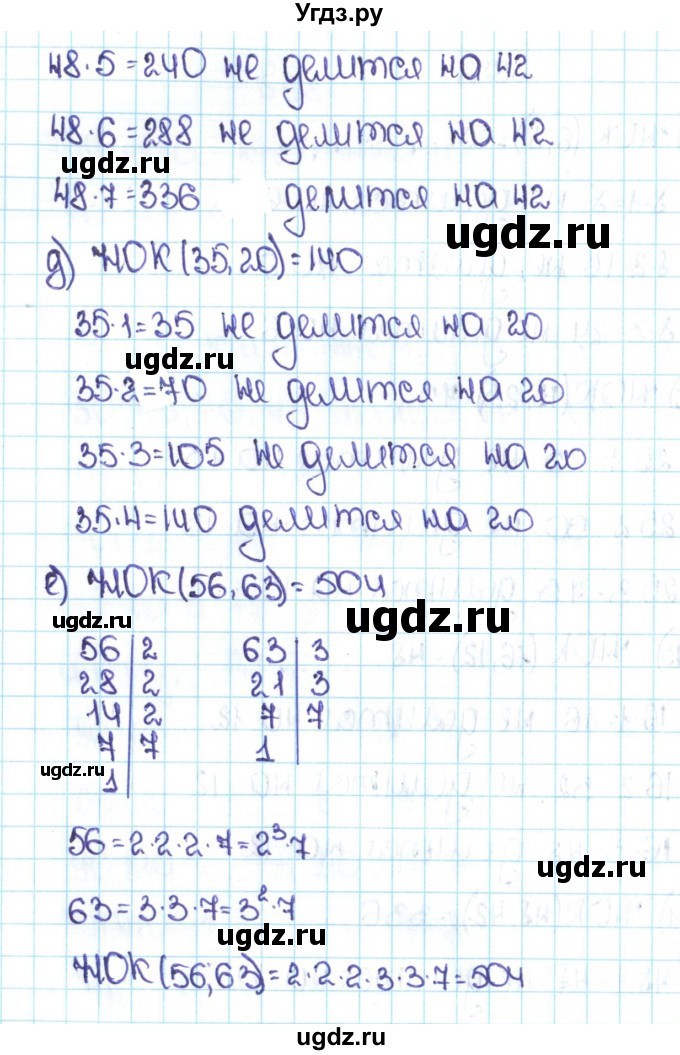 Угдз.ру
48·5=240 не делится на 42
48·6=288 не делится на 42
ugdz.ru
48·7=336 делится на 42
ugdz.ru
д) НОК(35,20)=140
35·1=35 не делится на 20
ugdz.ru
35·2=70 не делится на 20
35·3=105 не делится на 20
35·4=140 делится на 20
е) НОК(56,63)=504
ugdz.ru
ugdz.ru
56|2 63|3
28|2 21|3
14|2 7|7
7|7 1|
ugdz.ru
1|
56=2·2·2·7=2³·7
ugdz.ru
63=3·3·7=3²·7
ugdz.ru
НОК(56,63)=2·2·2·3·3·7=504
ugdz.ru